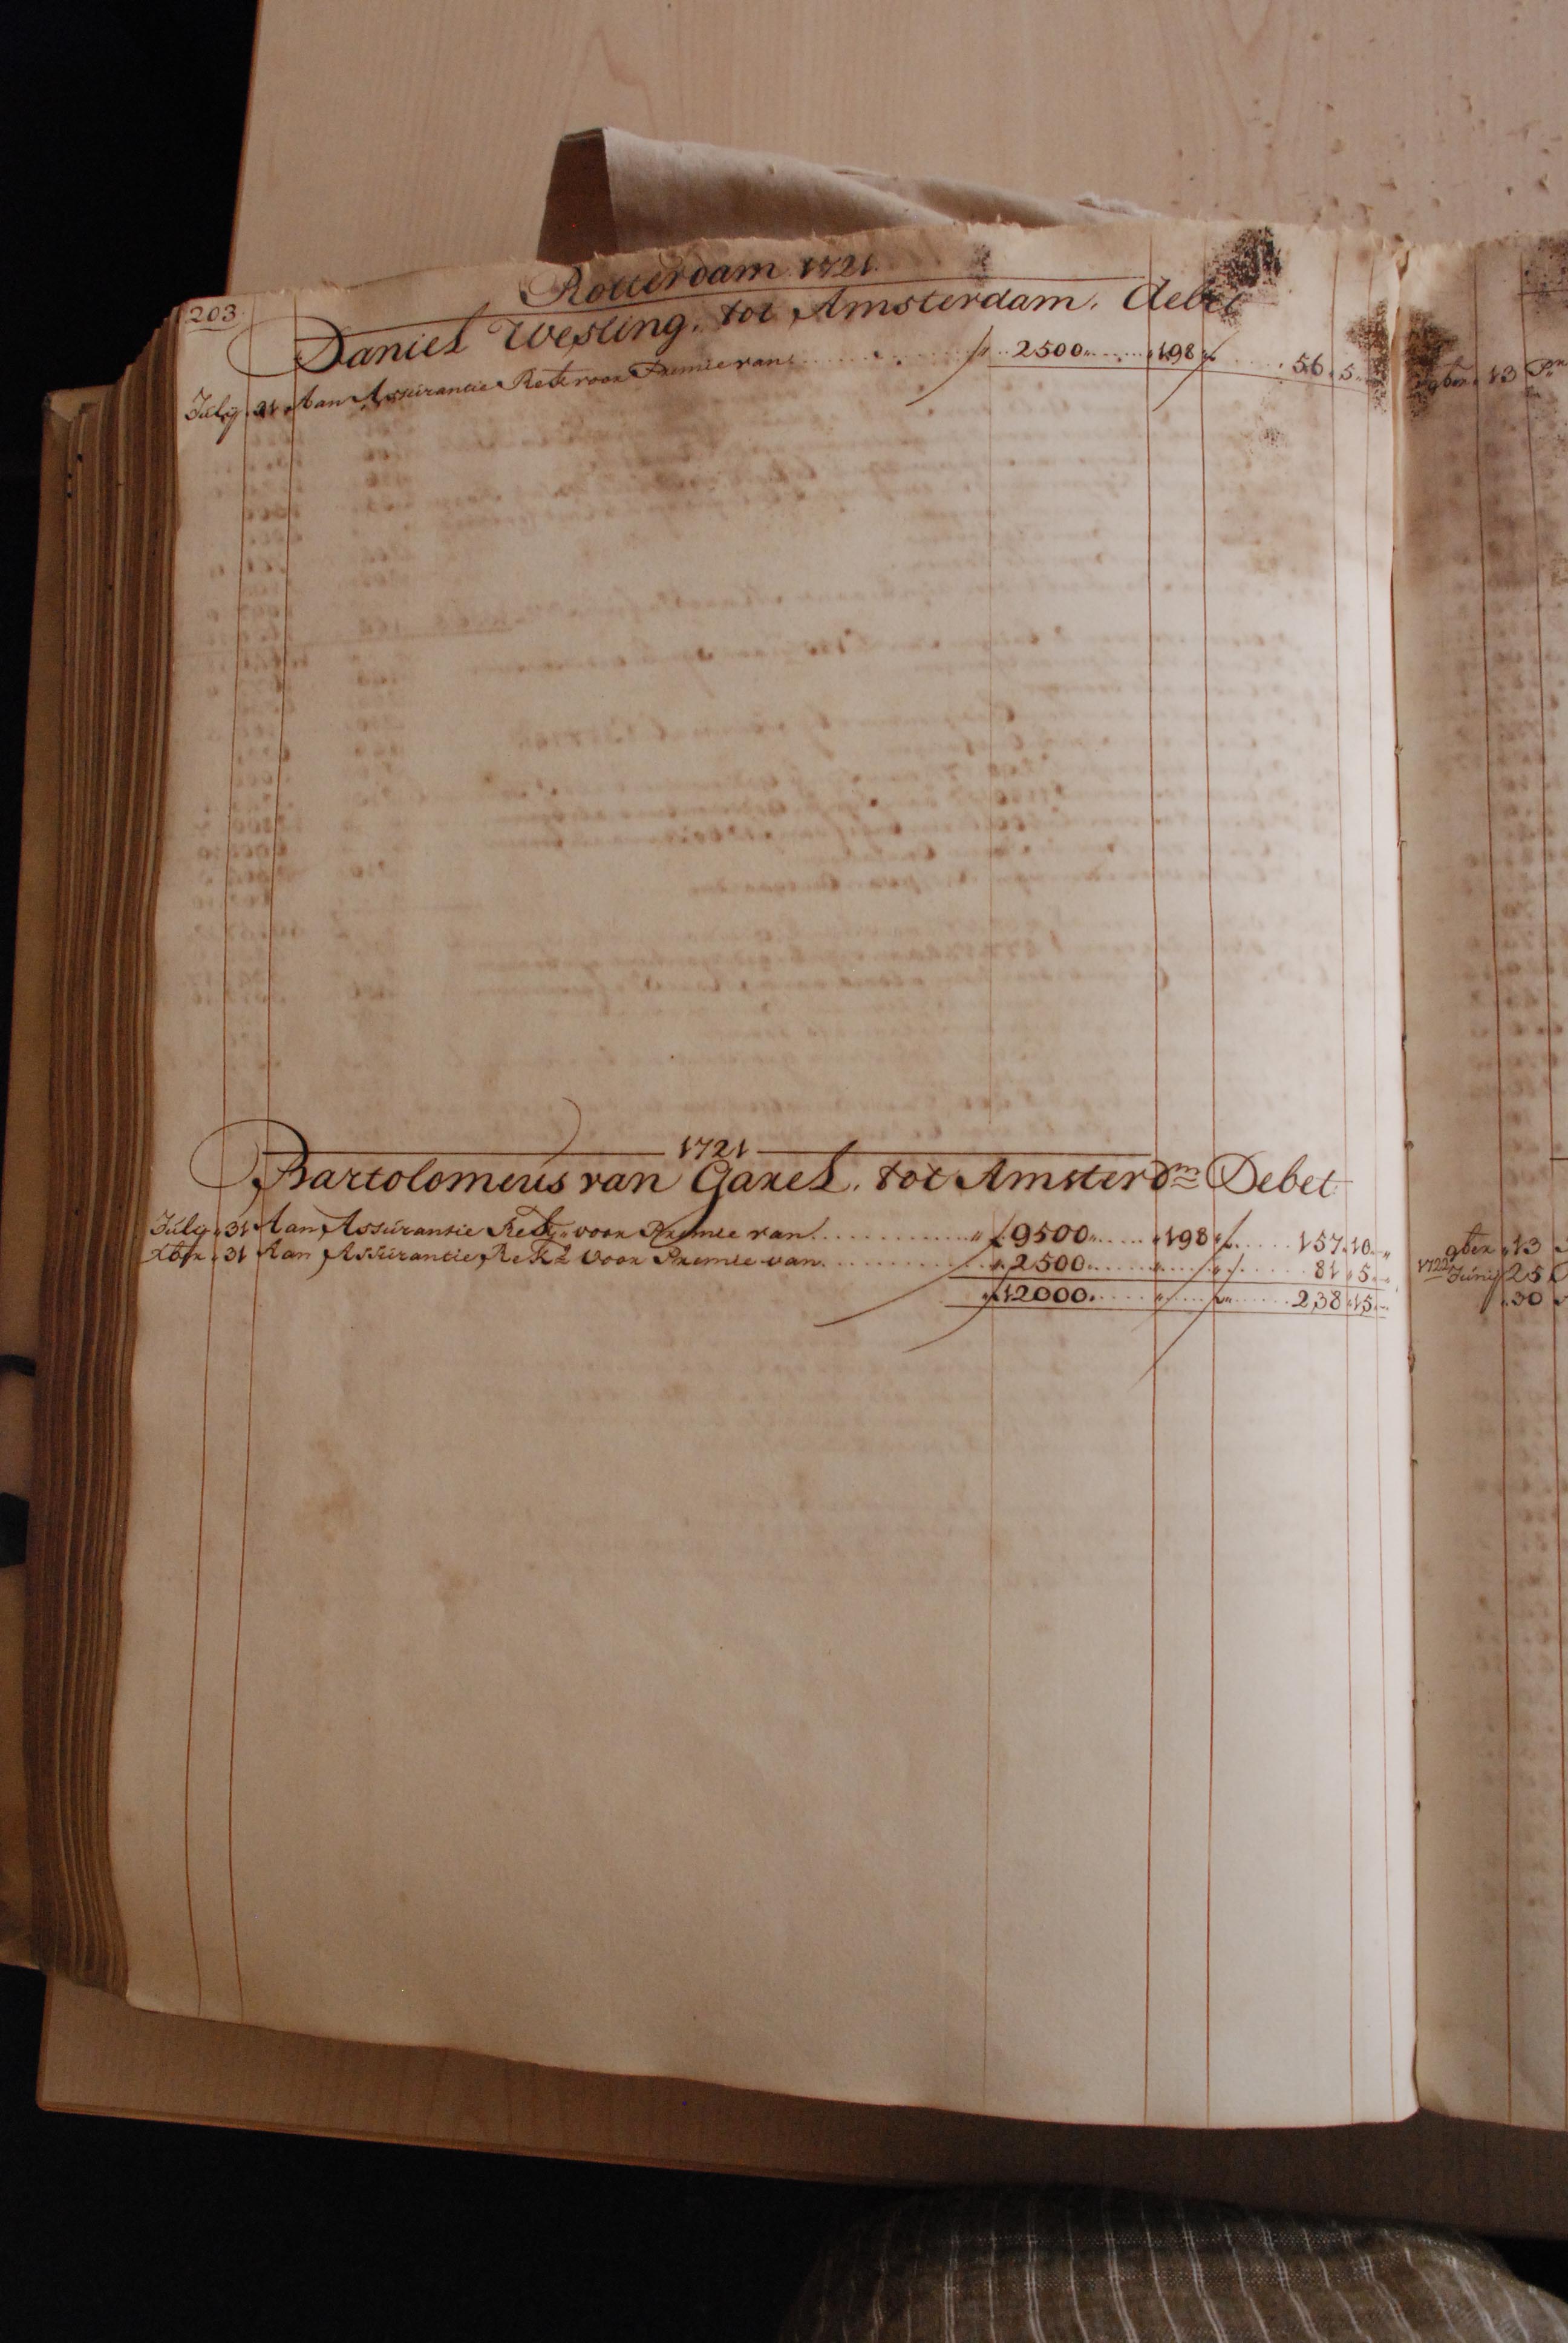 Rotterdam 1721
203
Daniel Wesling. tot Amsterdam. debet
July 31 Aan Assurantie Rek voor Premie van f 2500 198 f 56 5
1721
Bartolomeus van Gaxel. tot Amsterdm Debet
July 31 Aan Assurantie Rek voor Premie van f 9500 198 f 157 10
Xber 31 Aan Assurantie Rek voor Premie van 2500 81 5
f 12000 f 238 15
9ber 13
9ber 13
1722 Juny 25
30